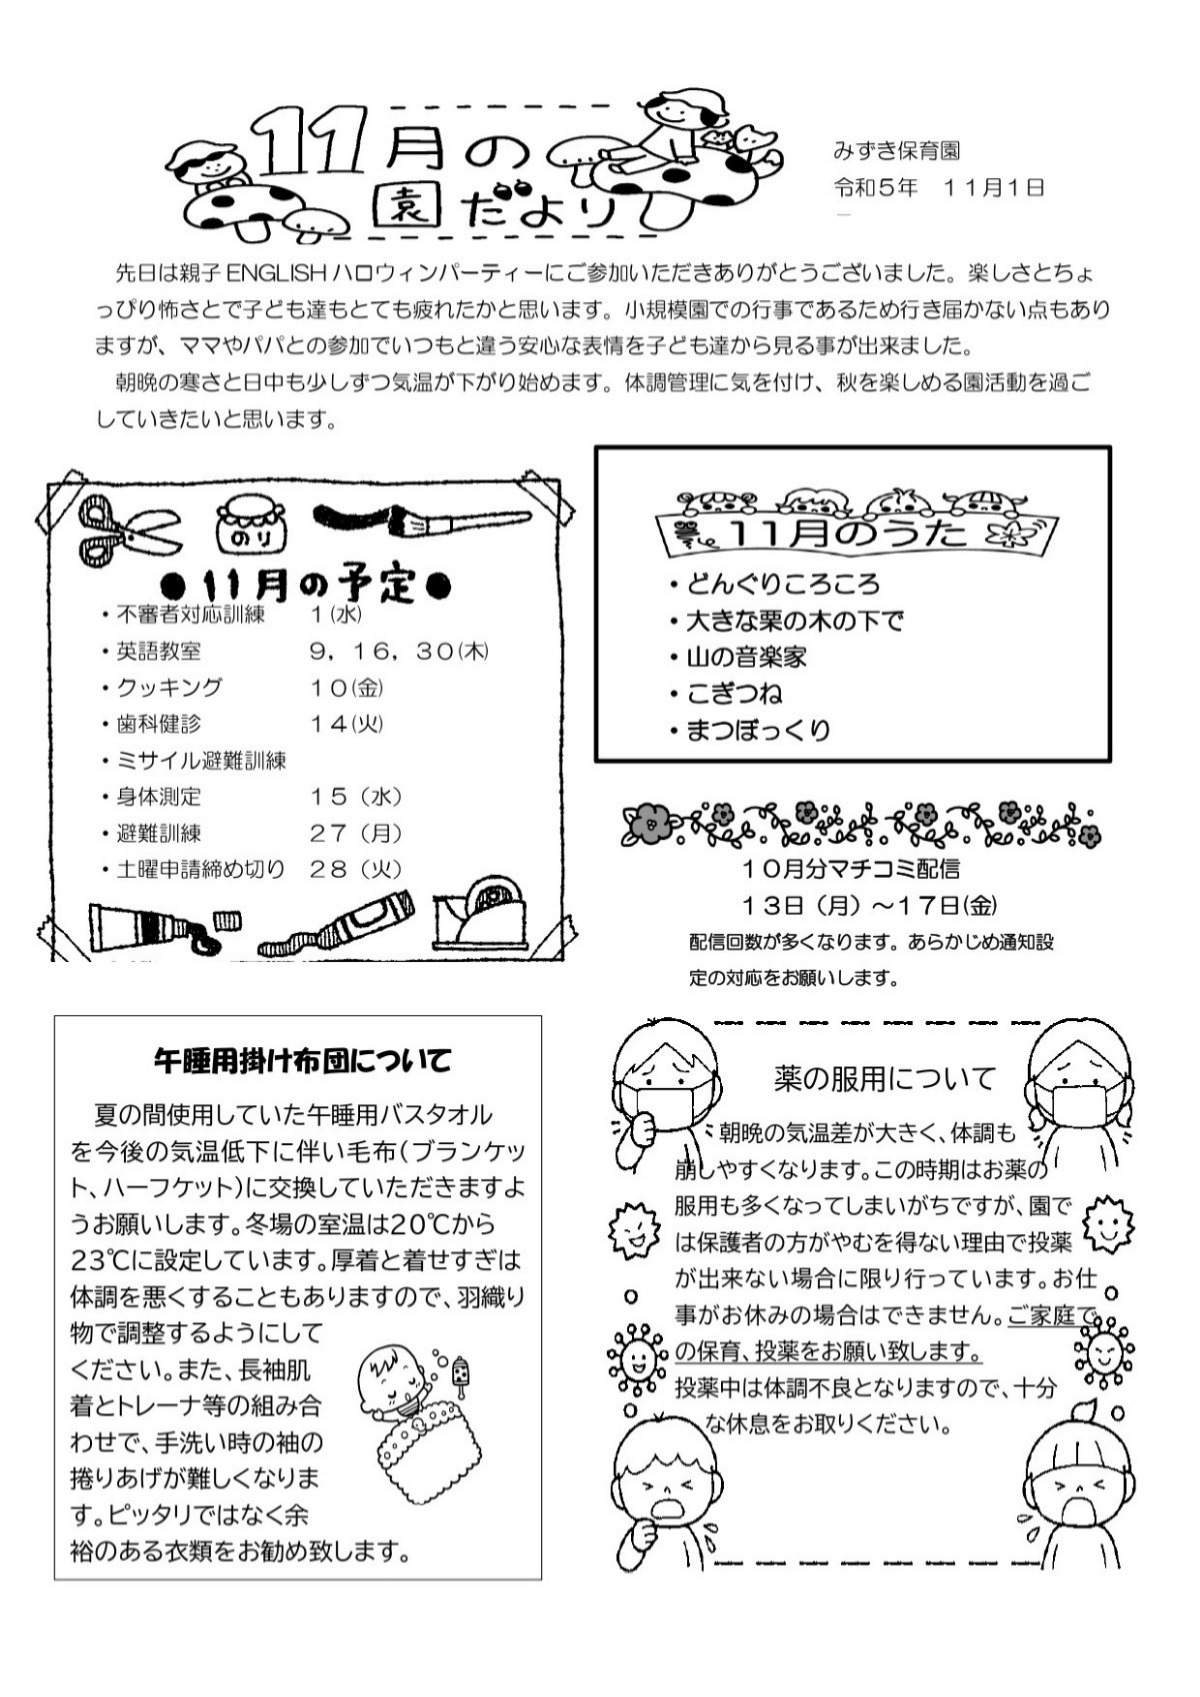 11月の
園だより
みずき保育園
令和５年　１１月１日
先日は親子 ENGLISH ハロウィンパーティーにご参加いただきありがとうございました。楽しさとちょ
っぴり怖さとで子ども達もとても疲れたかと思います。小規模園での行事であるため行き届かない点もあり
ますが、ママやパパとの参加でいつもと違う安心な表情を子ども達から見る事が出来ました。
朝晩の寒さと日中も少しずつ気温が下がり始めます。体調管理に気を付け、秋を楽しめる園活動を過ご
していきたいと思います。
のり
●11月の予定●
・不審者対応訓練　１(水)
・英語教室　９，１６，３０(木)
・クッキング　１０(金)
・歯科健診　１４(火)
・ミサイル避難訓練
・身体測定　１５（水）
・避難訓練　２７（月）
・土曜申請締め切り　２８（火）
11月のうた
・どんぐりころころ
・大きな栗の木の下で
・山の音楽家
・こぎつね
・まつぼっくり
１０月分マチコミ配信
１３日（月）～１７日(金)
配信回数が多くなります。あらかじめ通知設
定の対応をお願いします。
午睡用掛け布団について
夏の間使用していた午睡用バスタオル
を今後の気温低下に伴い毛布（ブランケッ
ト、ハーフケット）に交換していただきますよ
うお願いします。冬場の室温は20℃から
23℃に設定しています。厚着と着せすぎは
体調を悪くすることもありますので、羽織り
物で調整するようにして
ください。また、長袖肌
着とトレーナ等の組み合
わせで、手洗い時の袖の
捲りあげが難しくなりま
す。ピッタリではなく余
裕のある衣類をお勧め致します。
薬の服用について
朝晩の気温差が大きく、体調も
崩しやすくなります。この時期はお薬の
服用も多くなってしまいがちですが、園で
は保護者の方がやむを得ない理由で投薬
が出来ない場合に限り行っています。お仕
事がお休みの場合はできません。ご家庭で
の保育、投薬をお願い致します。
投薬中は体調不良となりますので、十分
な休息をお取りください。